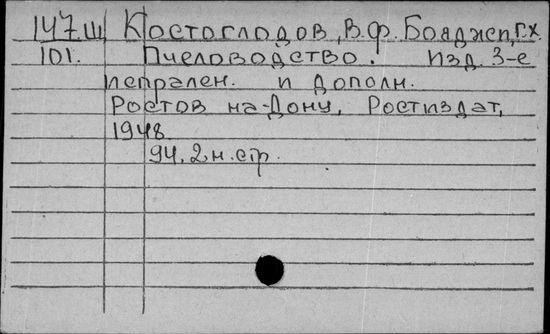 147ш Костоглодов, В.Ф. Бояджеп, Г.Х
101. Пчеловодство. Изд. 3-е
испрален. и дополн.
Ростов на-Дону, Ростиздат,
1948.
94, 2 н. стр.